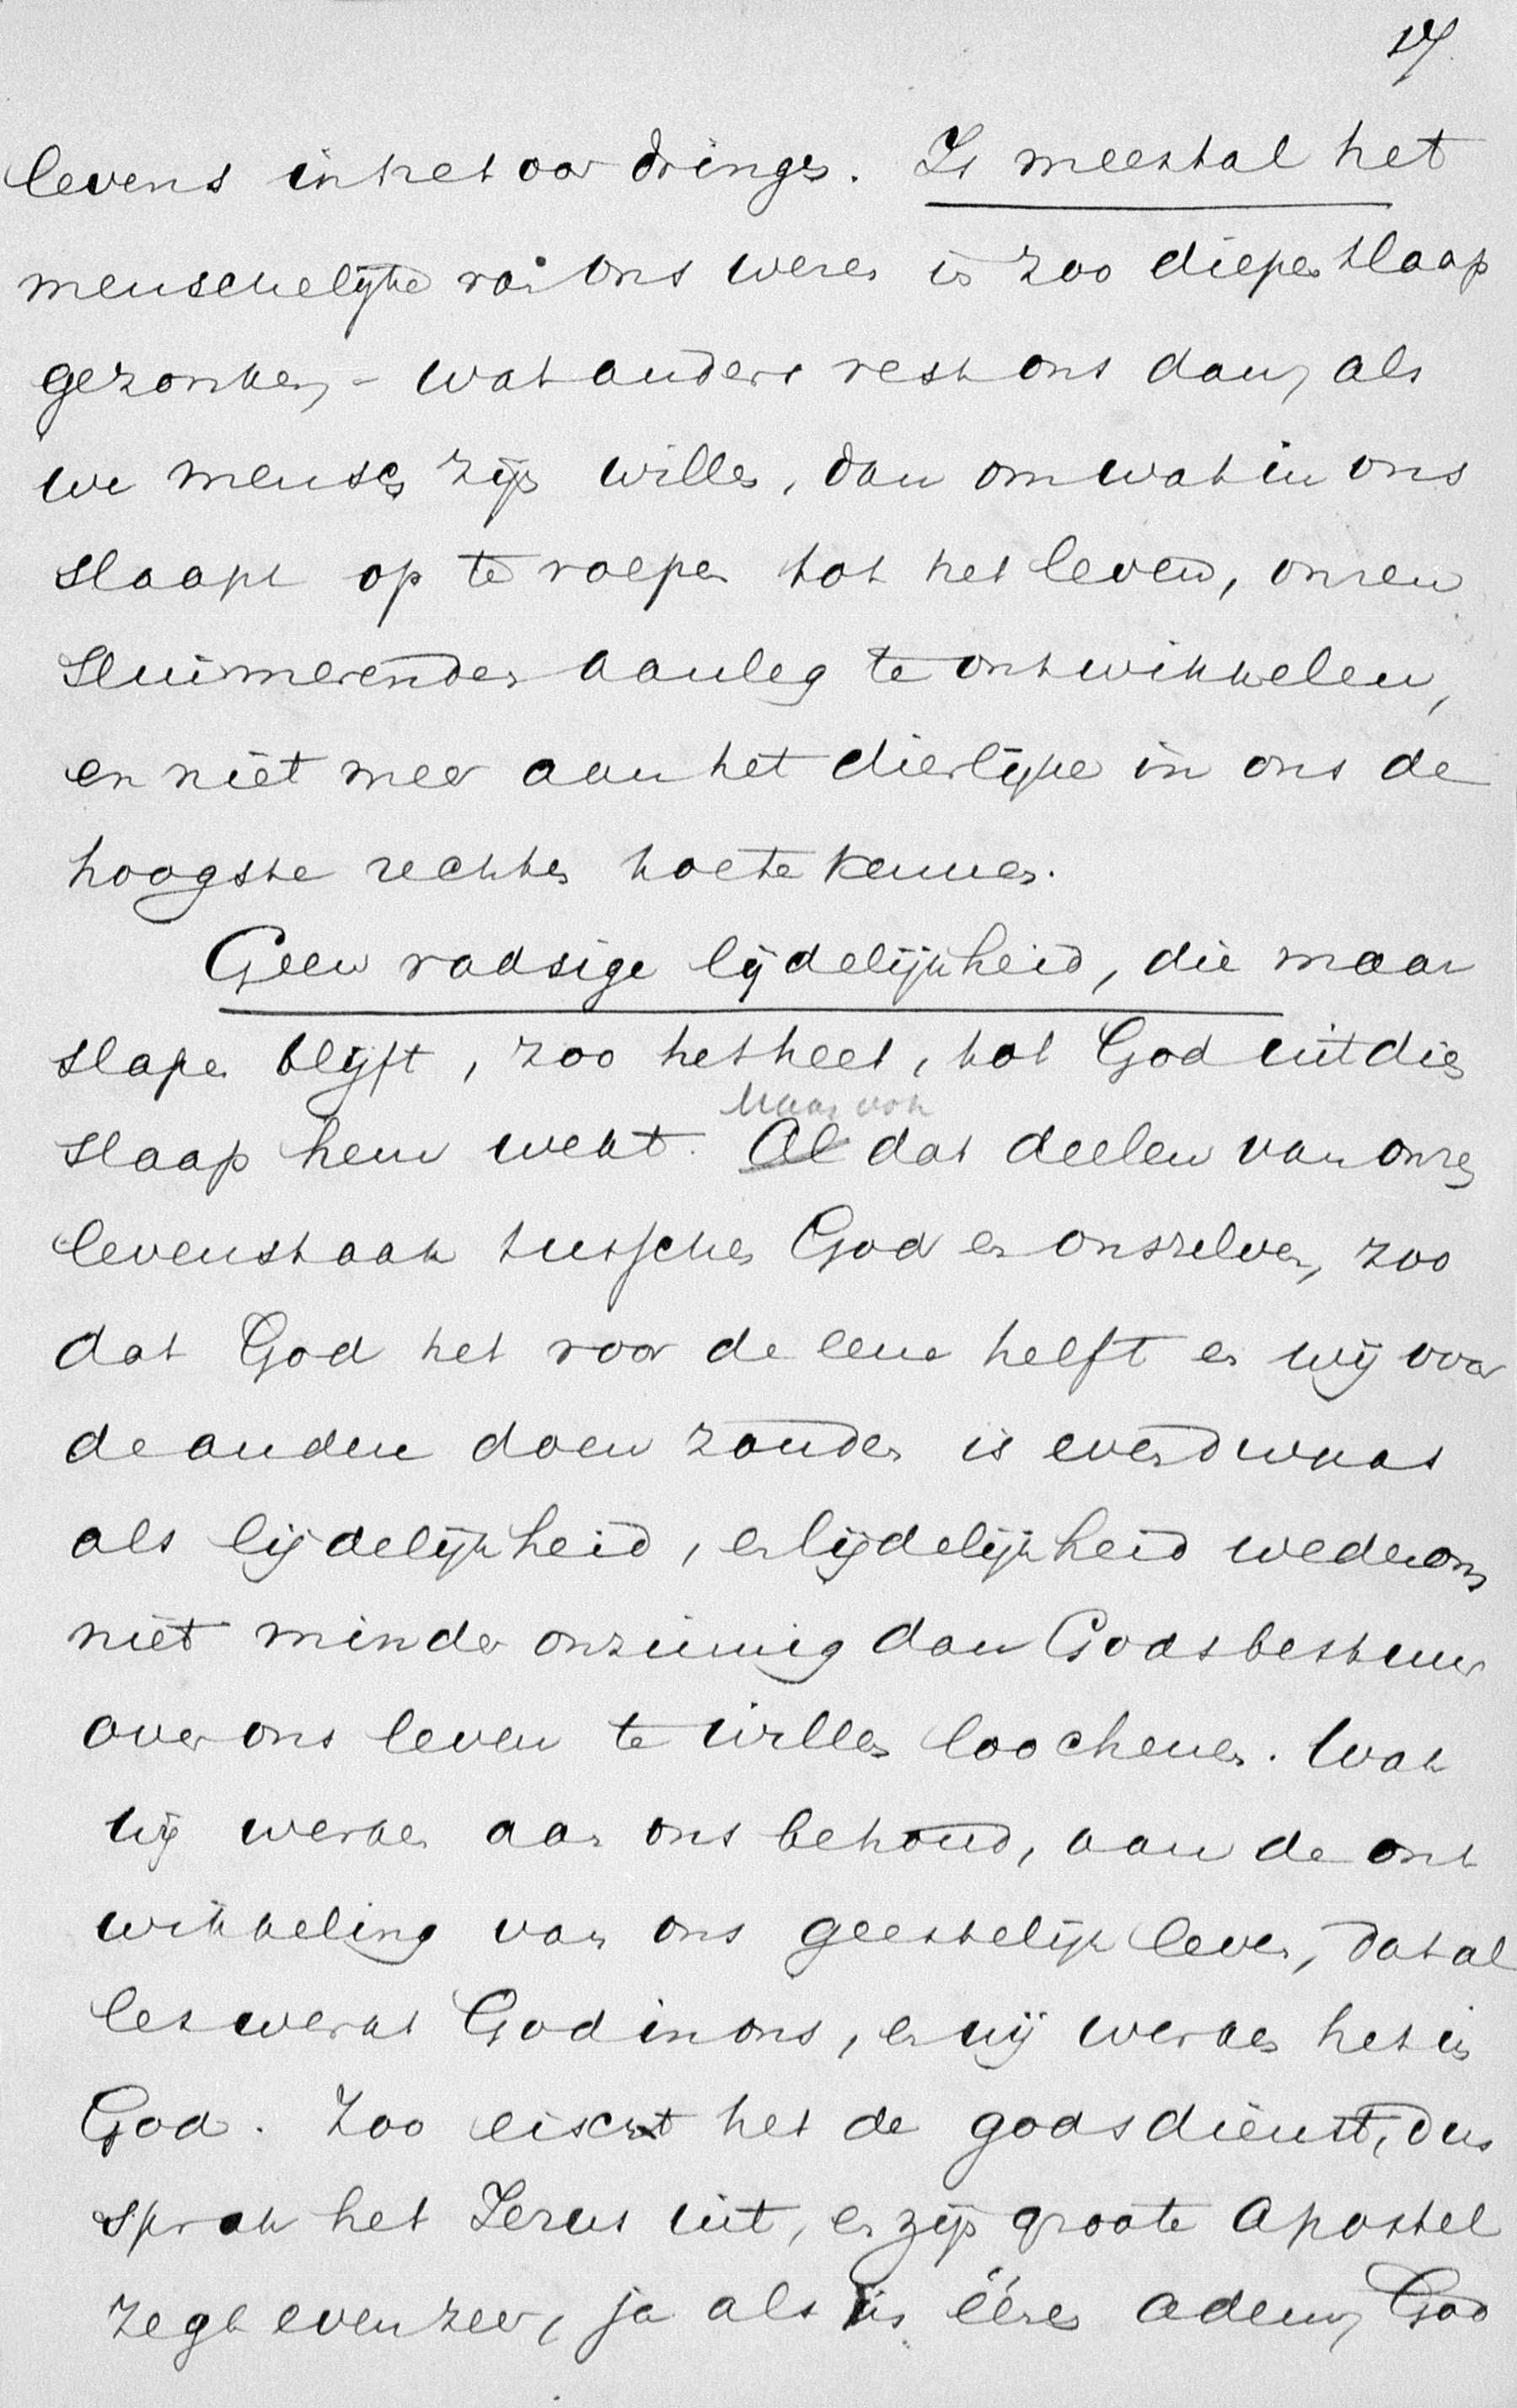 17.
levens in het oor dringen. Is meestal het
menschelijke van ons wezen in zoo diepen slaap
gezonken, - wat anders rest ons dan, als
we mensch zijn willen, dan om wat in ons
slaapt op te roepen tot het leven, onzen
sluimerenden aanleg te ontwikkelen,
en niet meer aan het dierlijke in ons de
hoogste rechten toe te kennen.
Geen vadsige lijdelijkheid, die maar
slapen blijft, zoo het heet, tot God uit dien
Maar ook
slaap hem wekt. Al dat deelen van onze
levenstaak tusschen God en onszelven, zoo
dat God het voor de eene helft en wij voor
de andere doen zouden is even dwaas
als lijdelijkheid, en lijdelijkheid wederom
niet minder onzinnig dan Godsbestuur
over ons leven te willen loochenen. Wat
wij werken aan ons behoud, aan de ont
wikkeling van ons geestelijk leven, dat al
les werkt God in ons, en wij werken het in
God. Zoo eischt het de godsdienst, dus
sprak het Jezus uit, en zijn groote Apostel
zegt evenzeer, ja als in éénen adem, God